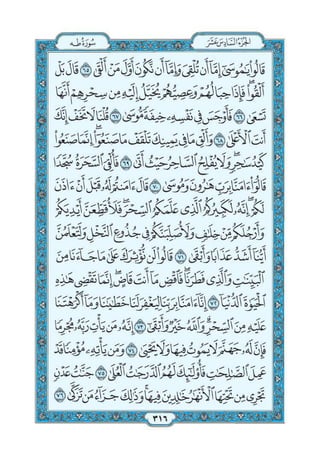 الجزء السادس عشر
سورة طه
قَالُوا۟ يَـٰمُوسَىٰٓ إِمَّآ أَن تُلْقِىَ وَإِمَّآ أَن نَّكُونَ أَوَّلَ مَنْ أَلْقَىٰ ٦٥ قَالَ بَلْ
أَلْقُوا۟ ۖ فَإِذَا حِبَالُهُمْ وَعِصِيُّهُمْ يُخَيَّلُ إِلَيْهِ مِن سِحْرِهِمْ أَنَّهَا
تَسْعَىٰ ٦٦ فَأَوْجَسَ فِى نَفْسِهِۦ خِيفَةً مُّوسَىٰ ٦٧ قُلْنَا لَا تَخَفْ إِنَّكَ
أَنتَ ٱلْأَعْلَىٰ ٦٨ وَأَلْقِ مَا فِى يَمِينِكَ تَلْقَفْ مَا صَنَعُوٓا۟ ۖ إِنَّمَا صَنَعُوا۟
كَيْدُ سَـٰحِرٍ ۖ وَلَا يُفْلِحُ ٱلسَّاحِرُ حَيْثُ أَتَىٰ ٦٩ فَأُلْقِىَ ٱلسَّحَرَةُ سُجَّدًا
قَالُوٓا۟ ءَامَنَّا بِرَبِّ هَـٰرُونَ وَمُوسَىٰ ٧٠ قَالَ ءَامَنتُمْ لَهُۥ قَبْلَ أَنْ ءَاذَنَ
لَكُمْ ۖ إِنَّهُۥ لَكَبِيرُكُمُ ٱلَّذِى عَلَّمَكُمُ ٱلسِّحْرَ ۖ فَلَأُقَطِّعَنَّ أَيْدِيَكُمْ
وَأَرْجُلَكُم مِّنْ خِلَـٰفٍ وَلَأُصَلِّبَنَّكُمْ فِى جُذُوعِ ٱلنَّخْلِ وَلَتَعْلَمُنَّ
أَيُّنَآ أَشَدُّ عَذَابًا وَأَبْقَىٰ ٧١ قَالُوا۟ لَن نُّؤْثِرَكَ عَلَىٰ مَا جَآءَنَا مِنَ
ٱلْبَيِّنَـٰتِ وَٱلَّذِى فَطَرَنَا ۖ فَٱقْضِ مَآ أَنتَ قَاضٍ ۖ إِنَّمَا تَقْضِى هَـٰذِهِ
ٱلْحَيَوٰةَ ٱلدُّنْيَآ ٧٢ إِنَّآ ءَامَنَّا بِرَبِّنَا لِيَغْفِرَ لَنَا خَطَـٰيَـٰنَا وَمَآ أَكْرَهْتَنَا
عَلَيْهِ مِنَ ٱلسِّحْرِ ۗ وَٱللَّهُ خَيْرٌ وَأَبْقَىٰٓ ٧٣ إِنَّهُۥ مَن يَأْتِ رَبَّهُۥ مُجْرِمًا
فَإِنَّ لَهُۥ جَهَنَّمَ لَا يَمُوتُ فِيهَا وَلَا يَحْيَىٰ ٧٤ وَمَن يَأْتِهِۦ مُؤْمِنًا قَدْ
عَمِلَ ٱلصَّـٰلِحَـٰتِ فَأُو۟لَـٰٓئِكَ لَهُمُ ٱلدَّرَجَـٰتُ ٱلْعُلَىٰ ٧٥ جَنَّـٰتُ عَدْنٍ
تَجْرِى مِن تَحْتِهَا ٱلْأَنْهَـٰرُ خَـٰلِدِينَ فِيهَا ۚ وَذَٰلِكَ جَزَآءُ مَن تَزَكَّىٰ ٧٦
٣١٦